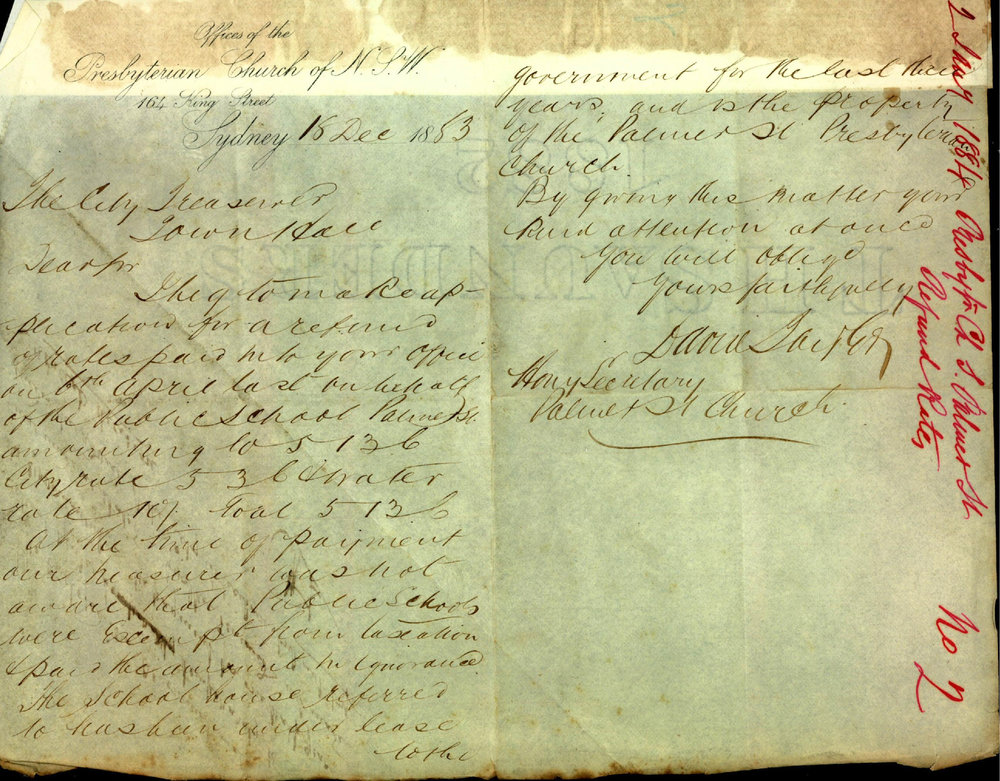 Offices of the
Presbyterian Church of N.S.W.
164 King Street
Sydney 18 Dec 1883
The City Treasurer
Town Hall
Dear Sir
I beg to make ap-
plication for a refund
of rates paid into your office
on 6th April last on behalf
of the Public School Palmer St.
amounting to 5 13 6
City rate 5 3 6 & water
rate 10/ total 5 13 6
At the time of payment
our treasurer was not
aware that Public Schools
were Exempt from taxation
& paid the amount in ignorance
The School House referred
to has been under lease
to the
government for the last three
years, and is the property
of the Palmer St Presbyterian
Church.
By giving this matter your
kind attention at once
You will oblige
Yours faithfully
David
Hony Secretary
Palmer St Church.
2 Jany 1884 Presbytn Ch S. Palmer St
Refund Rates
No 7
2